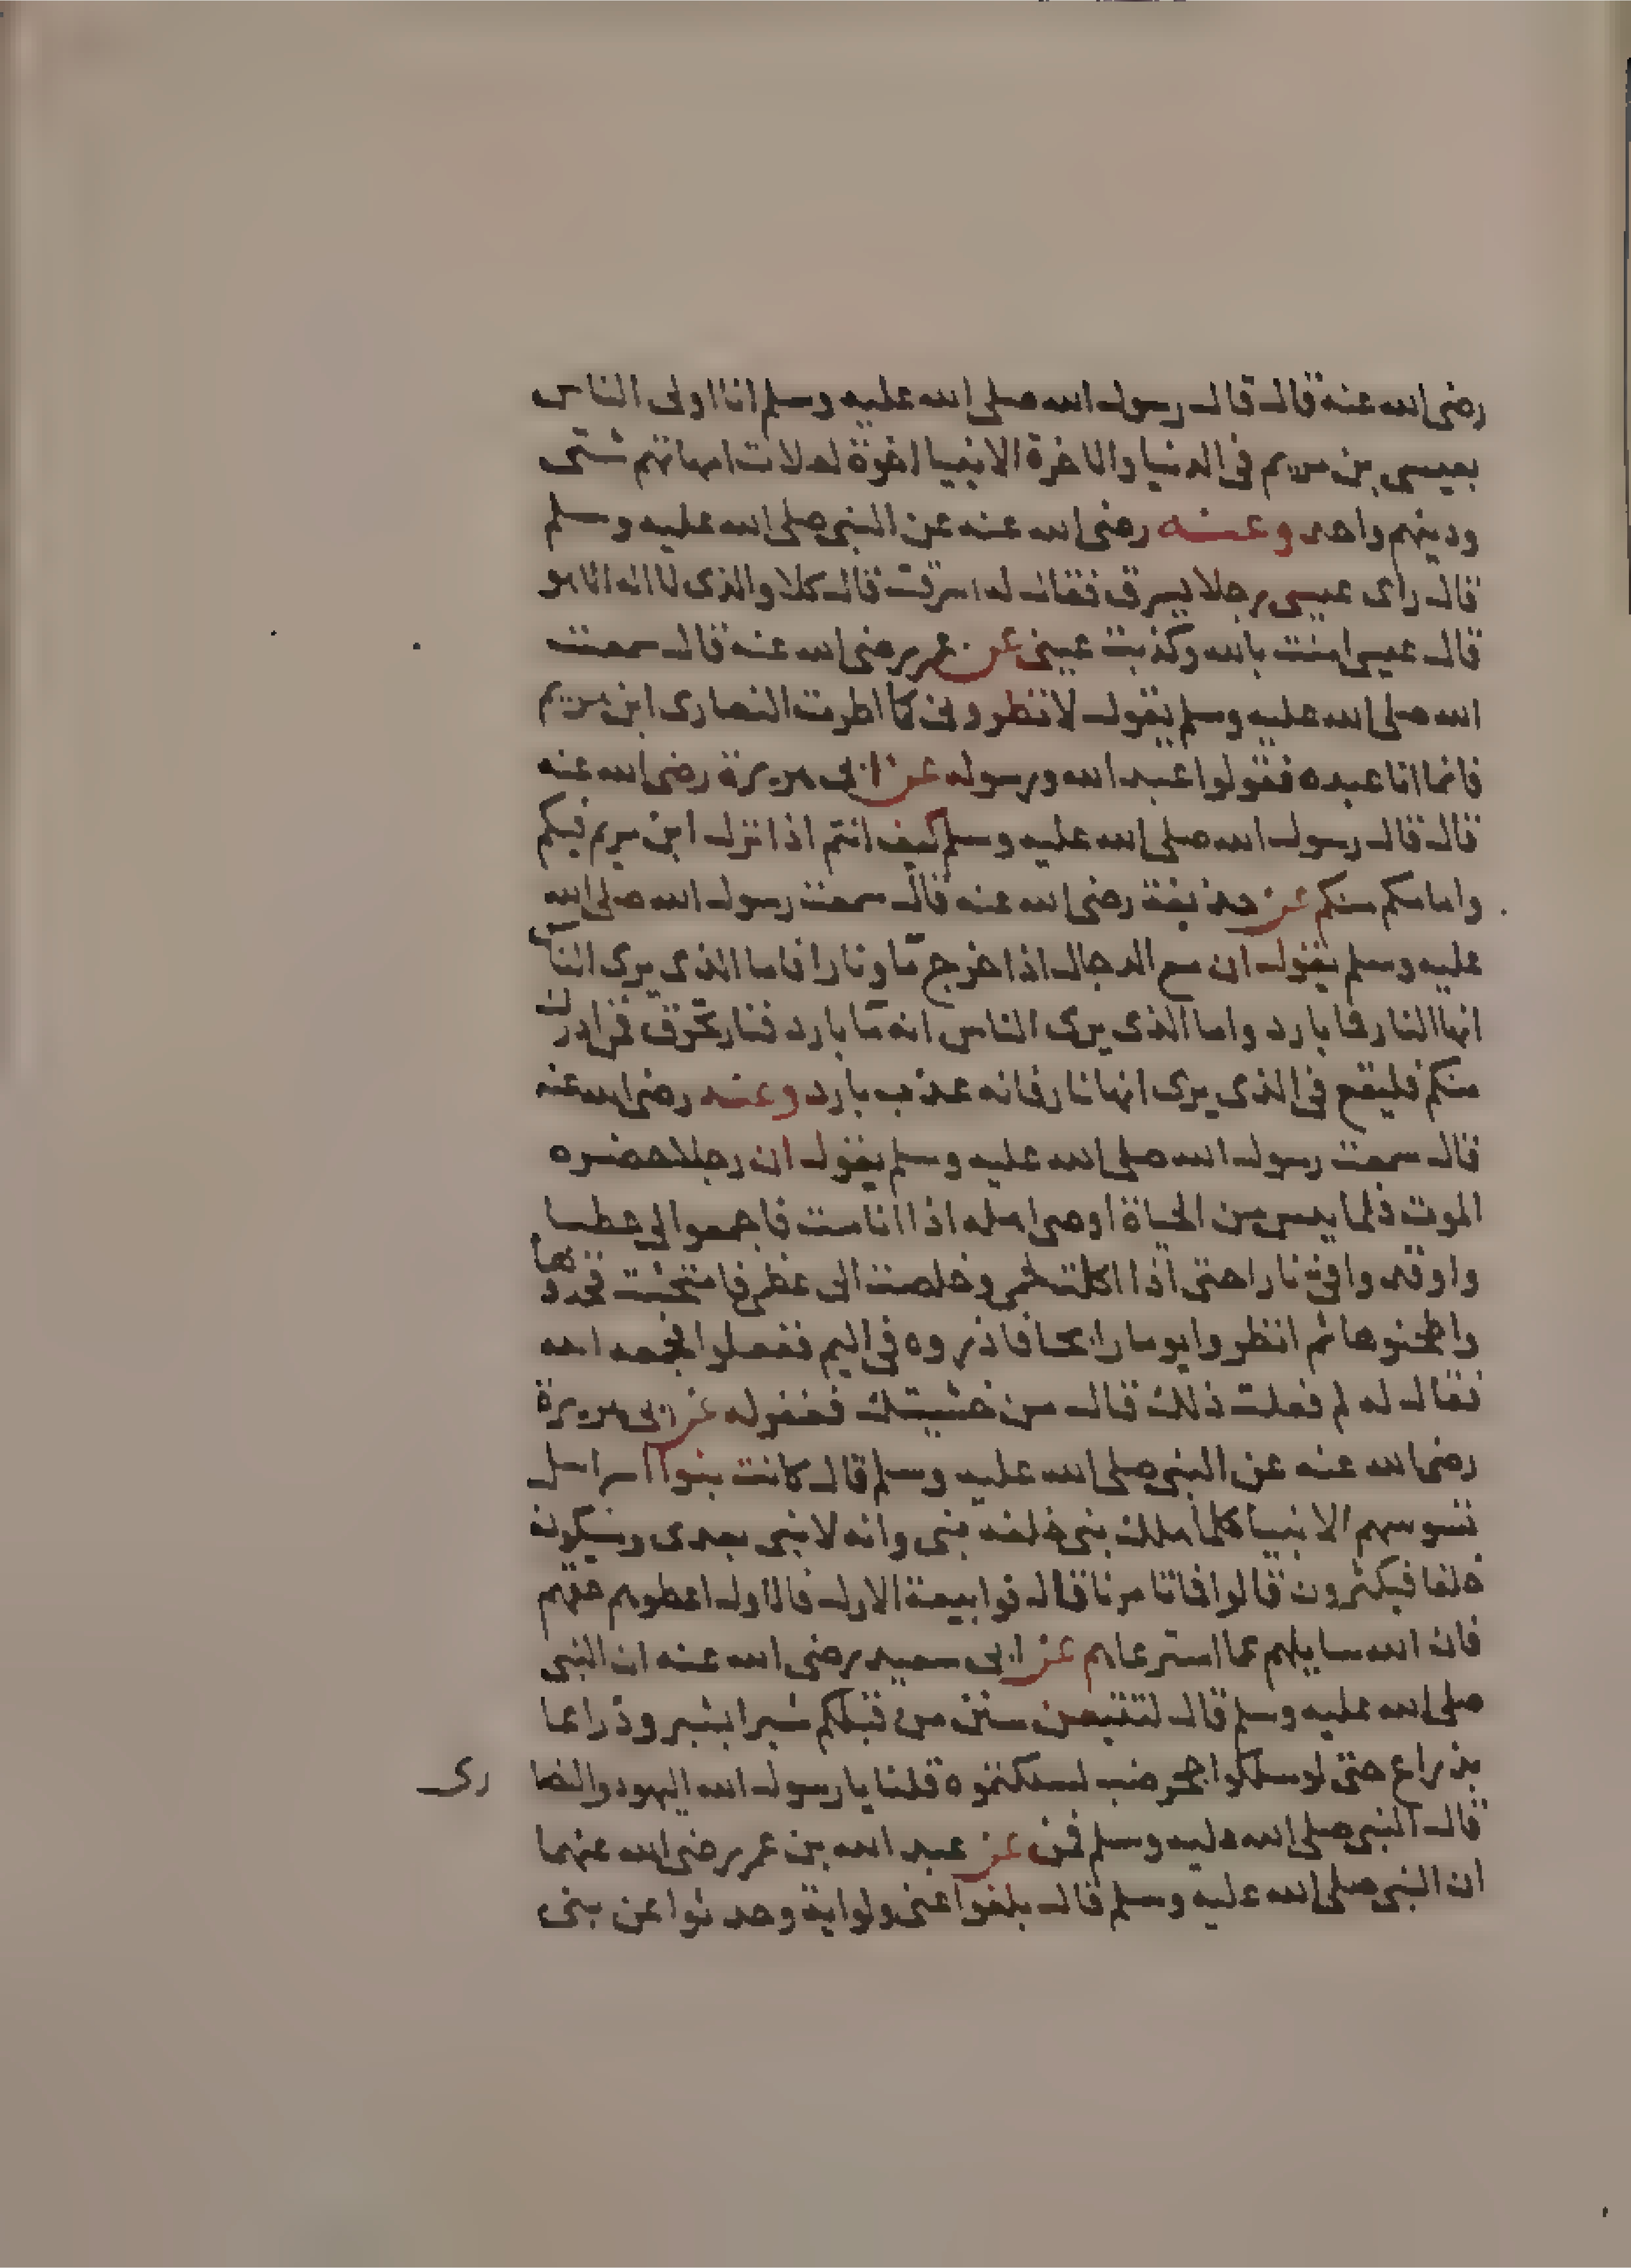 رضى الله عنه قال قال رسول الله صلى الله عليه وسلم انا اولى الناس
بعيسى بن مريم فى الدنيا والاخرة الانبيا اخوة لعلات امهاتهم شتى
ودينهم واحد وعنه رضى الله عنه عن النبى صلى الله عليه وسلم
قال راى عيسى رجلا يسرق فقال له اسرقت قال كلا والذى لا اله الا هو
قال عيسى امنت بالله وكذبت عينى عن عمر رضى الله عنه قال سمعت
الله صلى الله عليه وسلم يقول لا تطرونى كما اطرت النصارى ابن مريم
فانما انا عبده فقولوا عبد الله ورسوله عن ابى هريرة رضى الله عنه
قال قال رسول الله صلى الله عليه وسلم كيف انتم اذا نزل ابن مريم فيكم
وامامكم منكم عن حذيفة رضى الله عنه قال سمعت رسول الله صلى الله
عليه وسلم يقول ان مع الدجال اذا خرج مآ ونارا فاما الذى يرى الناس
انها النار فما بارد واما الذى يرى الناس انه مآ بارد فنار تحرق فمن ادرك
منكم فليقع فى الذى يرى انها نار فانه عذب بارد وعنه رضى الله عنه
قال سمعت رسول الله صلى الله عليه وسلم يقول ان رجلا حضره
الموت فلما يئس من الحياة اوصى اهله اذا انا مت فاجمعوا لى حطبا
واوقدوا فيه نارا حتى اذا اكلت لحمى وخلصت الى عظمى فامتحشت فخذوها
واطحنوها ثم انظروا يوما راحا فاذروه فى اليم ففعلوا فجمعه الله
فقال له لم فعلت ذلك قال من خشيتك فغفر له عن ابى هريرة
رضى الله عنه عن النبى صلى الله عليه وسلم قال كانت بنوا اسرايل
تسوسهم الانبيا كلما هلك نبى خلفه نبى وانه لا نبى بعدى وسيكون
خلفا فيكثرون قالوا فما تامرنا قال فوا بيعة الاول فالاول اعطوهم حقهم
فان الله سايلهم عما استرعاهم عن ابى سعيد رضى الله عنه ان النبى
صلى الله عليه وسلم قال لتتبعن سنن من قبلكم شبرا بشبر وذراعا
بذراع حتى لو سلكوا جحر ضب لسلكتموه قلنا يا رسول الله اليهود والنصا رى
قال النبى صلى الله عليه وسلم فمن عن عبد الله بن عمر رضى الله عنهما
ان النبى صلى الله عليه وسلم قال بلغوا عنى ولو اية وحدثوا عن بنى